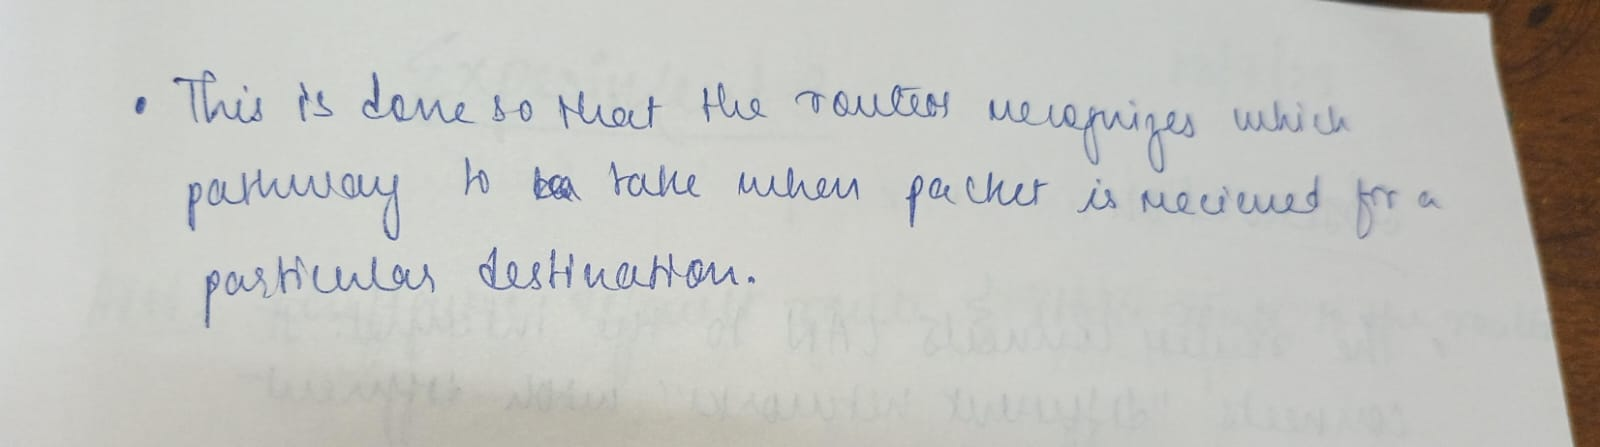 • This is done so that the router recognizes which
pathway to take when packet is recieved for a
particular destination.